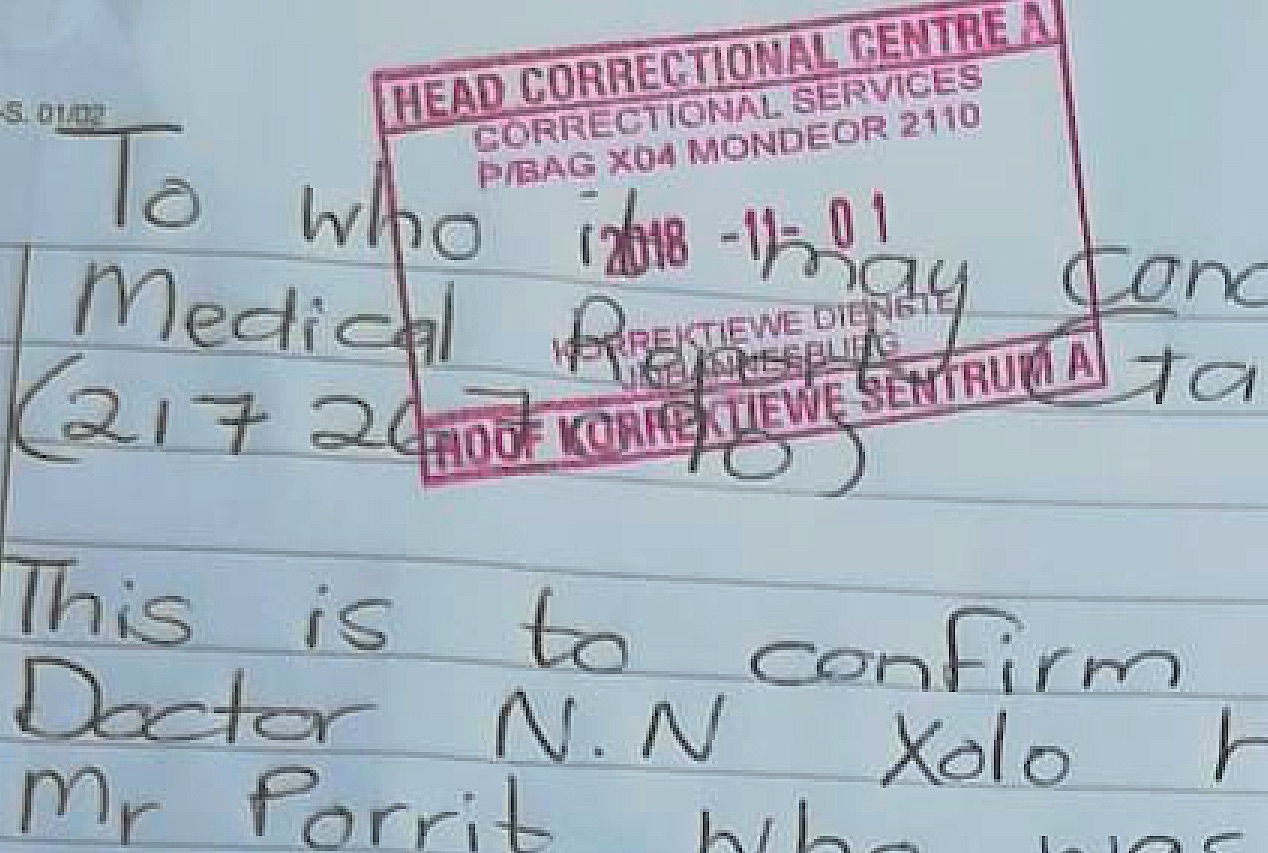 HEAD CORRECTIONAL CENTRE A
CORRECTIONAL SERVICES
P/BAG X04 MONDEOR 2110
S. 01/02
To who it may conc
2018 -11- 01
Medical
KORREKTIEWE DIENSTE
JOHANNESBURG
HOOF KORREKTIEWE SENTRUM A
(217 26
This is to confirm
Doctor N.N Xolo h
Mr Porrit who was